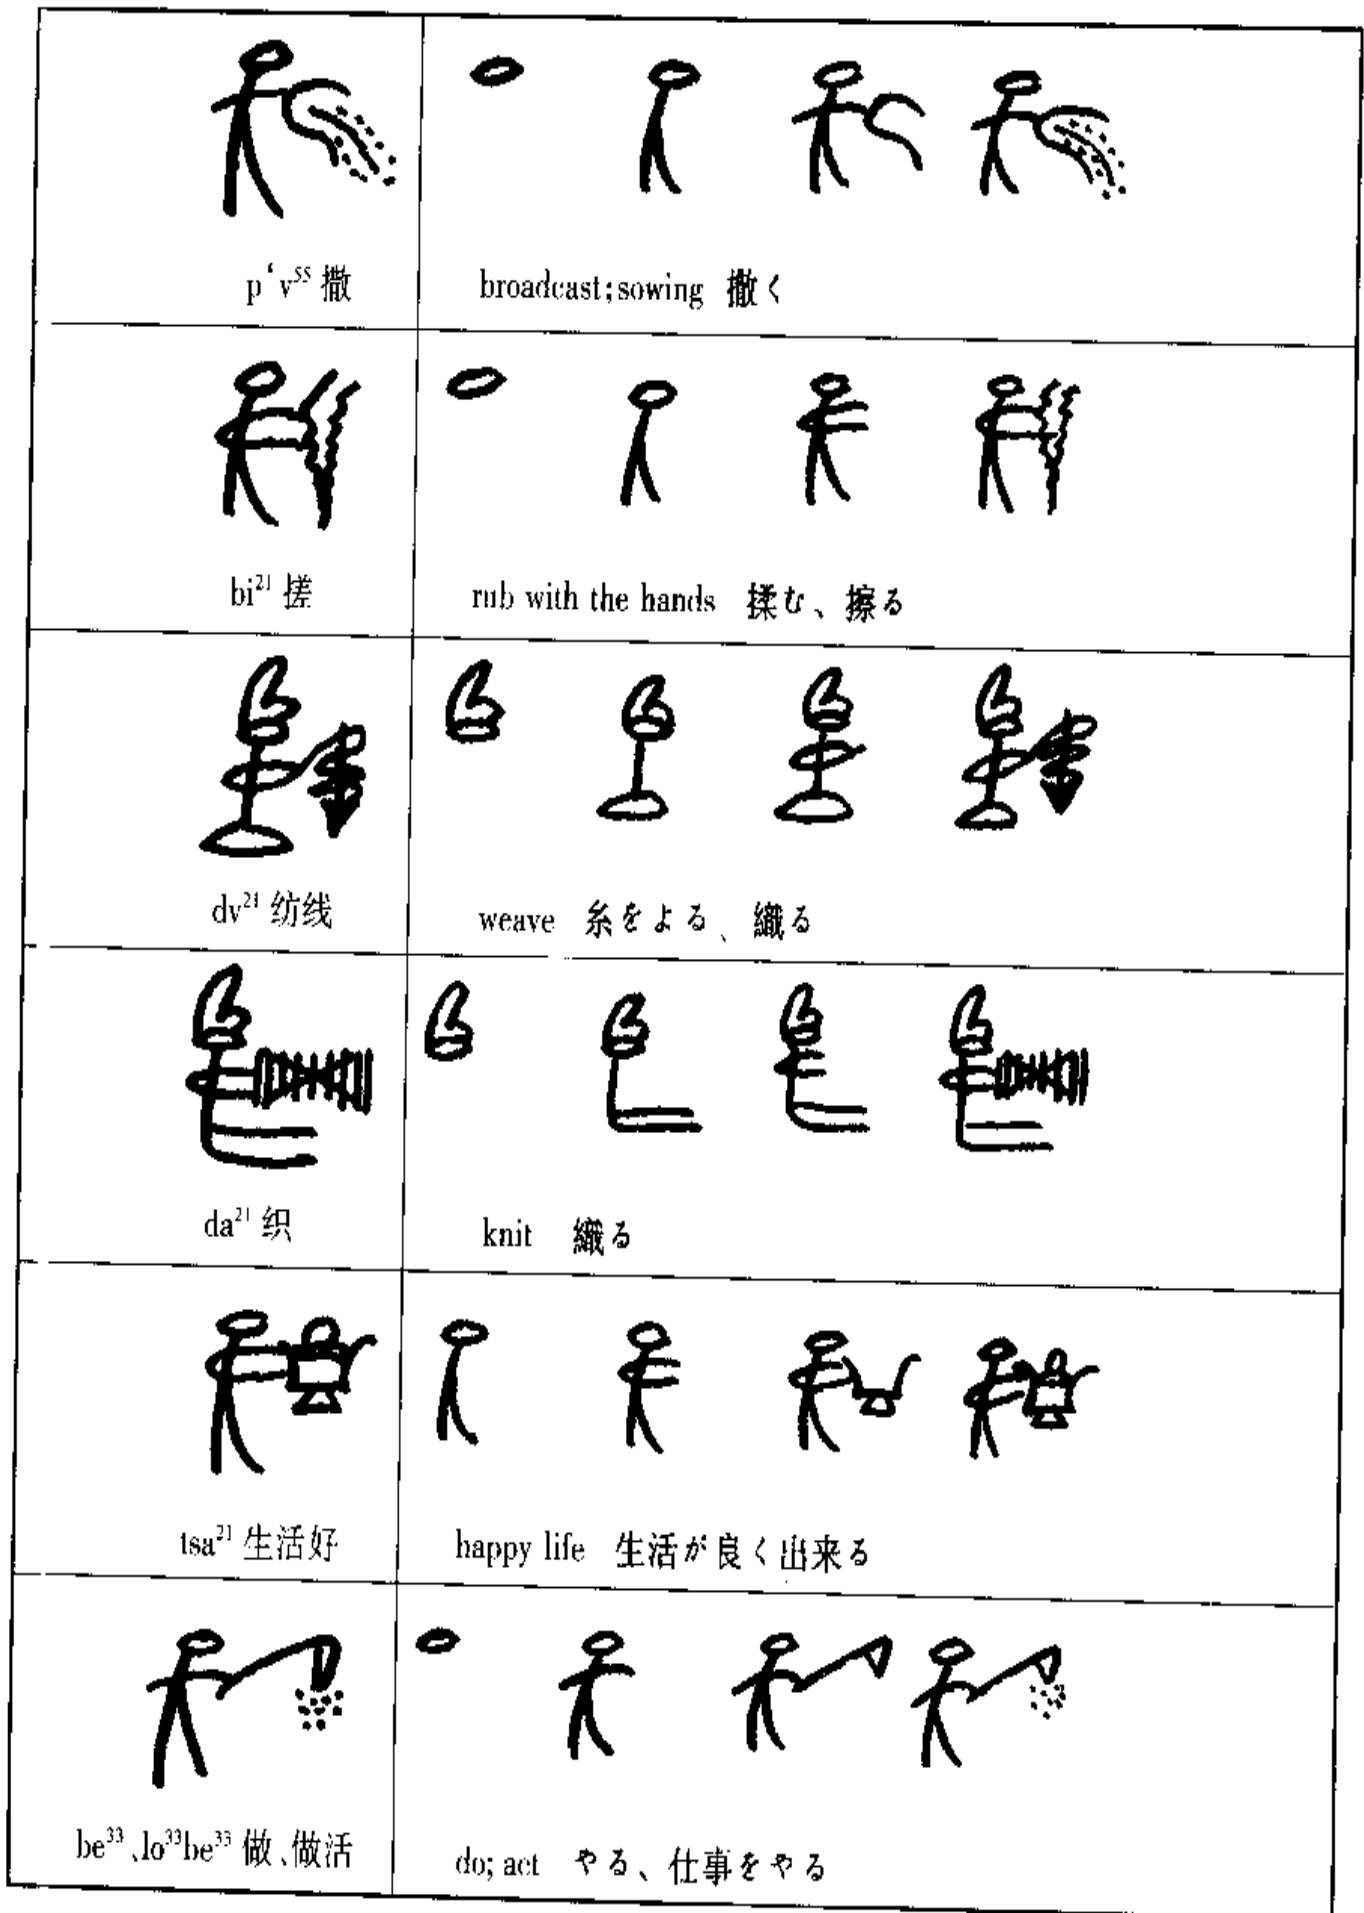 p‘v⁵⁵ 撒
broadcast;sowing 撒く
bi²¹ 搓
rub with the hands 揉む、擦る
dv²¹ 纺线
weave 糸をよる、織る
da²¹ 织
knit 織る
tsa²¹ 生活好
happy life 生活が良く出来る
be³³、lo³³be³³ 做、做活
do; act やる、仕事をやる